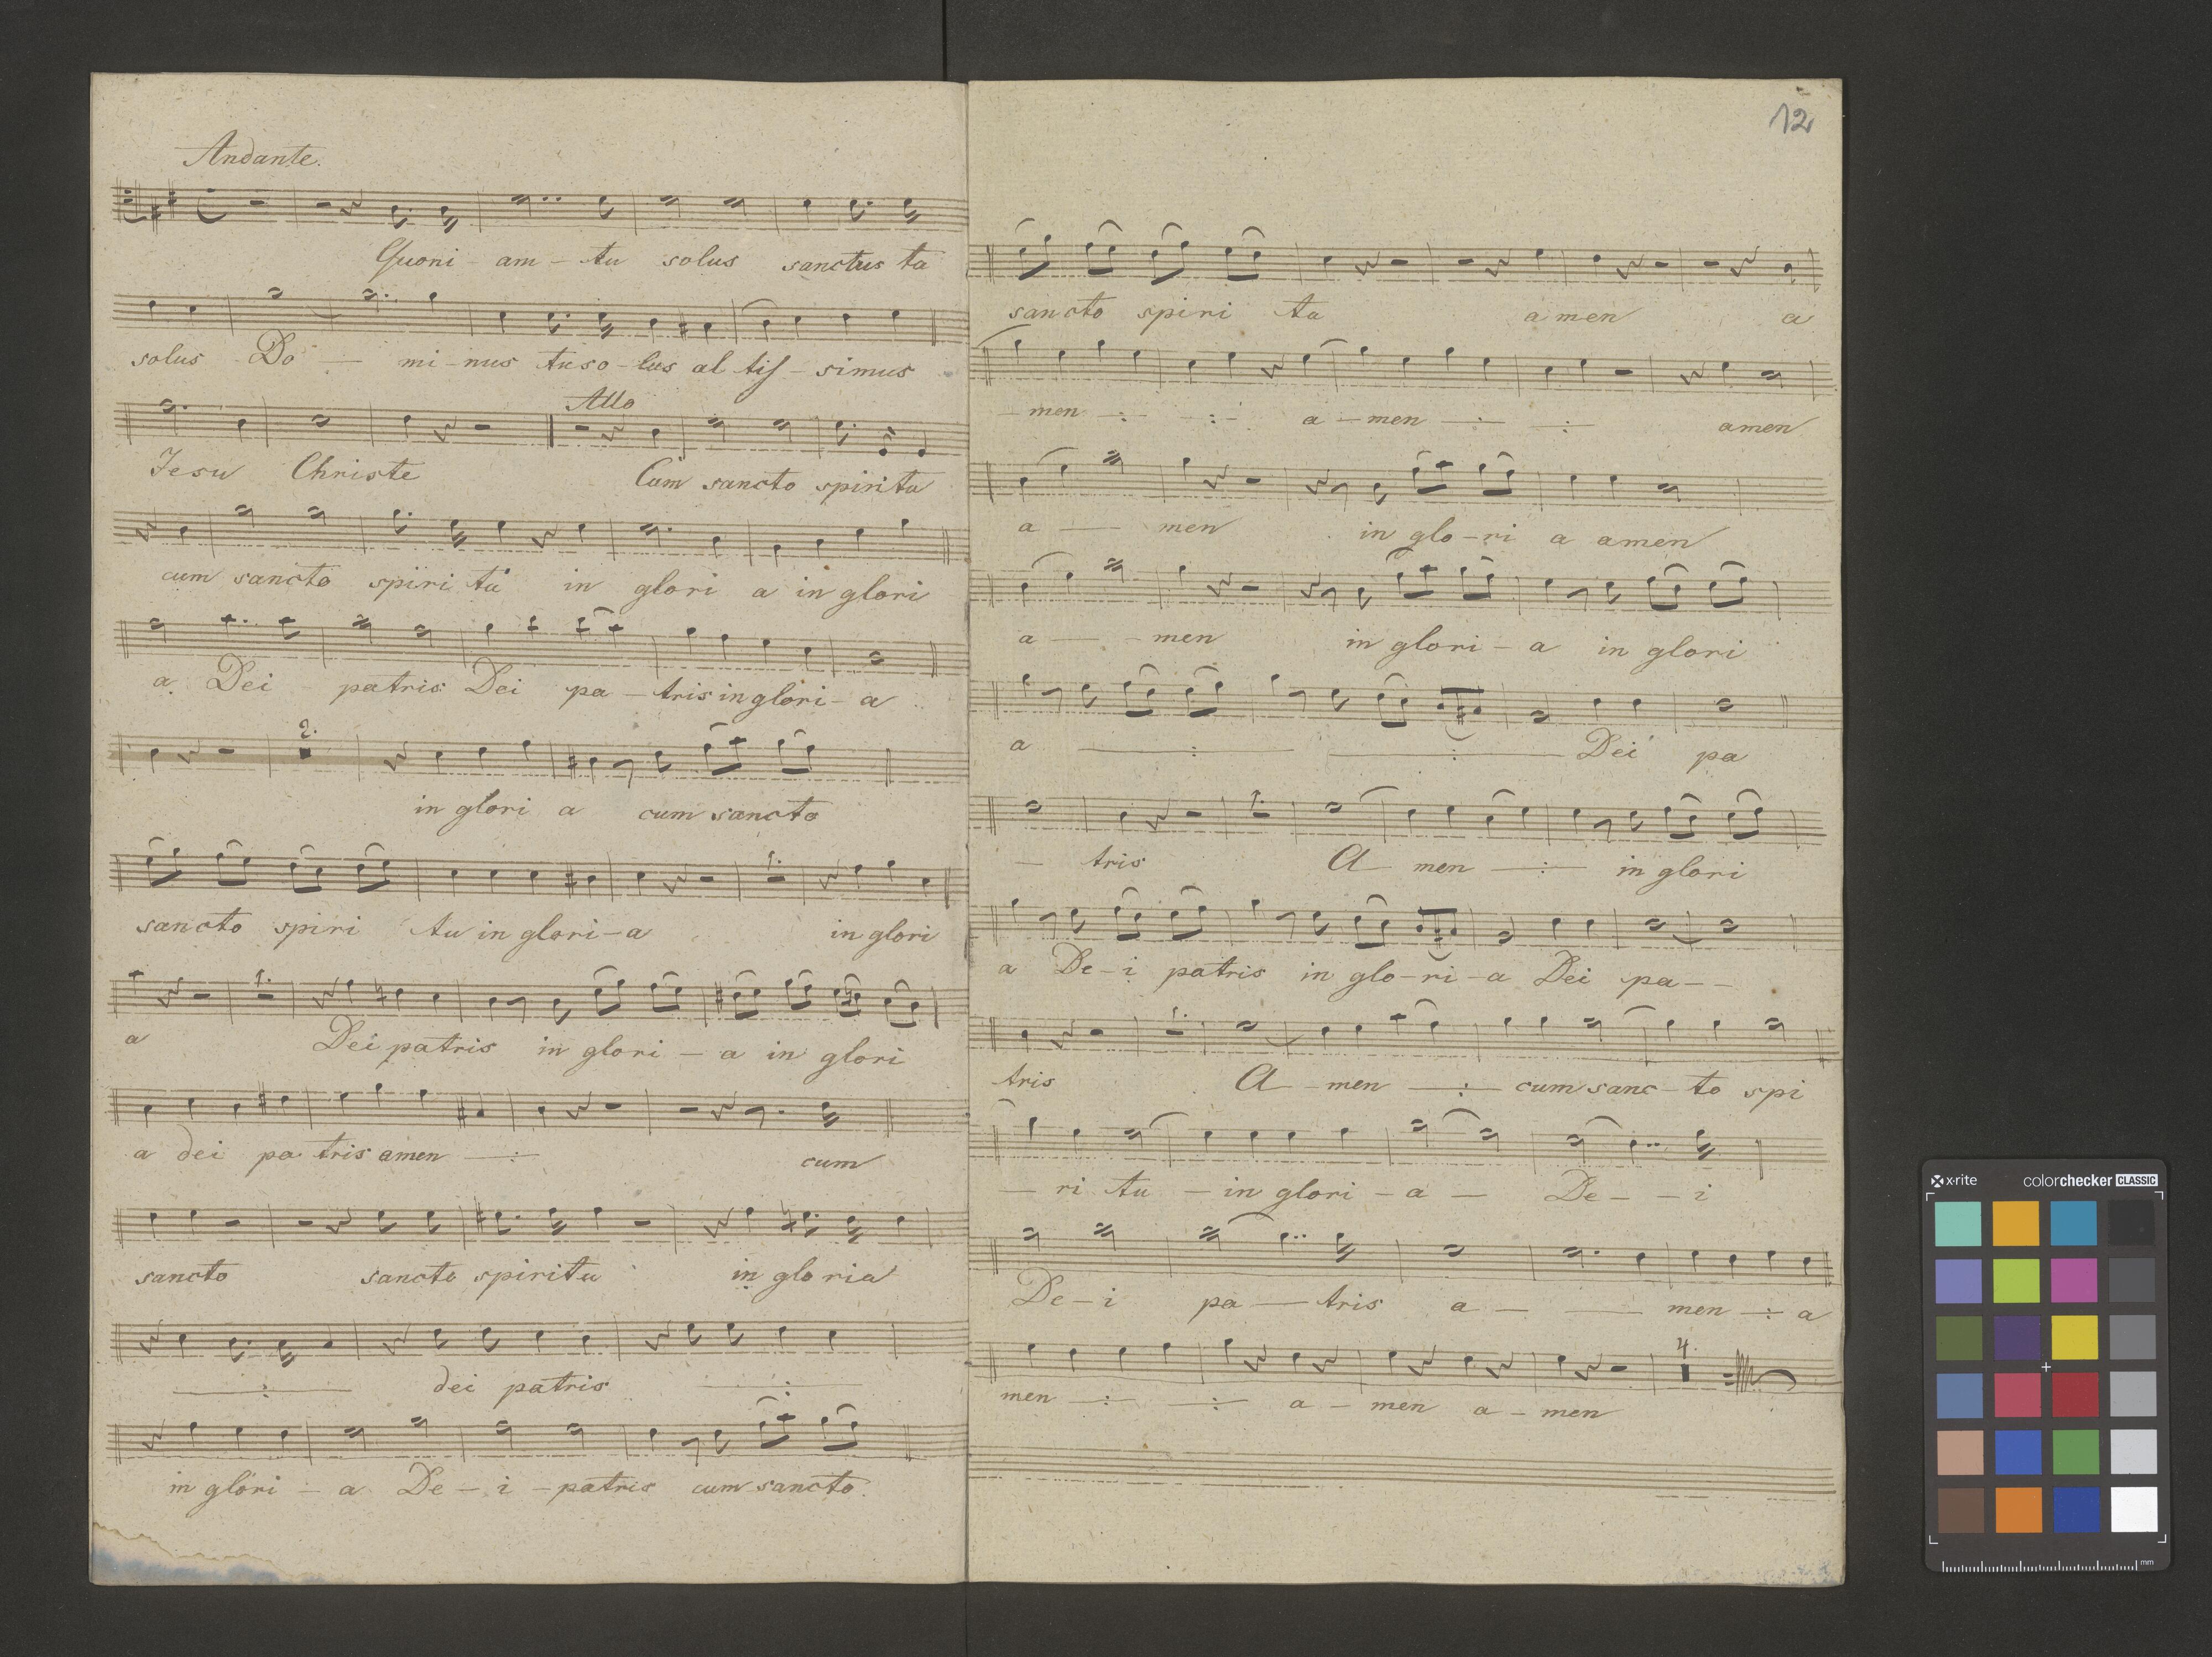 Andante.
Quoni - am - tu solus sanctus tu
solus Do - mi - nus tu so - lus al tis - simus
Allo
Jesu Christe Cum sancto spiritu
cum sancto spiri tu in glori a in glori
a Dei patris Dei pa - tris in glori - a
2.
in glori a cum sancto
1.
sancto spiri tu in glori - a in glori
1.
a Dei patris in glori - a in glori
a dei pa tris amen - : cum
sancto sancto spiritu in gloria
- : - dei patris - : -
in glori - a De - i - patris cum sancto.
12
sancto spiri tu amen a
- men - : - : - a - men - : - amen
a - men in glo - ri a amen
a - men in glori - a in glori
a - : - - : - Dei pa
1.
- tris A men - : - in glori
a De - i patris in glo - ri - a Dei pa - -
1.
tris A - men - : - cum sanc - to spi
- ri tu - in glori - a - De - - i
De - i pa - tris a - - men - : a
4.
men - : - : - a - men a - men
x-rite colorchecker CLASSIC
mm